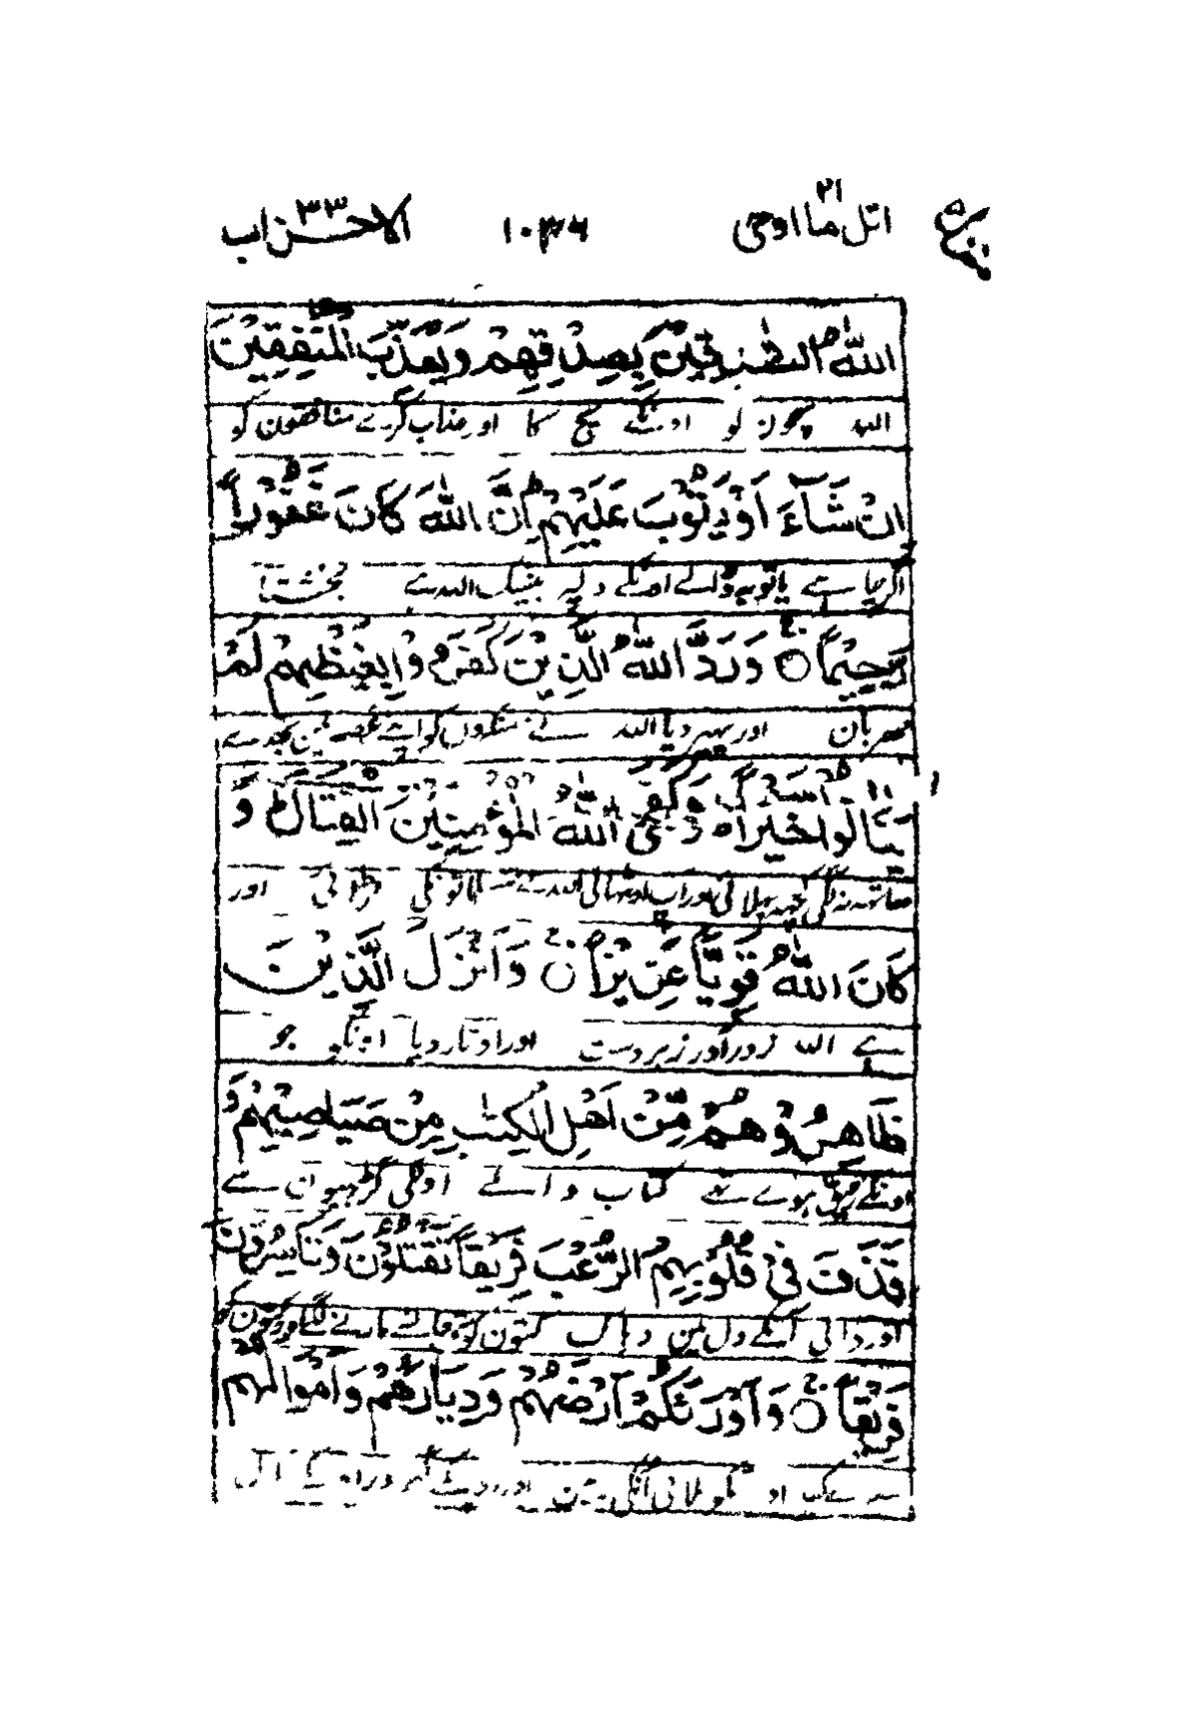 منزل ۵ اتل ما اوحی ۲۱ ۱۰۳۶ الاحزاب ۳۳
اللّٰهُ الصّٰدِقِيْنَ بِصِدْقِهِمْ وَيُعَذِّبَ الْمُنٰفِقِيْنَ
اللہ سچون کو اونکے سچ کا اور عذاب کرے منافقون کو
اِنْ شَآءَ اَوْ يَتُوْبَ عَلَيْهِمْ اِنَّ اللّٰهَ كَانَ غَفُوْرًا
اگر چاہے یا توبہ ڈالے اونکے دل پر بیشک اللہ ہے بخشتا
رَّحِيْمًا ۝ وَرَدَّ اللّٰهُ الَّذِيْنَ كَفَرُوْا بِغَيْظِهِمْ لَمْ
مہربان اور پھیر دیا اللہ نے منکرون کو اپنے غصہ مین بھرے
يَنَالُوْا خَيْرًا وَكَفَى اللّٰهُ الْمُؤْمِنِيْنَ الْقِتَالَ وَ
ہاتھ نہ لگی کچھ بھلائی اور آپ اوٹھالی اللہ نے لڑائی اور
كَانَ اللّٰهُ قَوِيًّا عَزِيْزًا ۝ وَاَنْزَلَ الَّذِيْنَ
ہے اللہ زورآور زبردست اور اوتار دیا انکو جو
ظَاهَرُوْهُمْ مِّنْ اَهْلِ الْكِتٰبِ مِنْ صَيَاصِيْهِمْ وَ
اونکے رفیق ہوے تھے کتاب والے اونکی گڑھیون سے
قَذَفَ فِيْ قُلُوْبِهِمُ الرُّعْبَ فَرِيْقًا تَقْتُلُوْنَ وَتَاْسِرُوْنَ
اور ڈالی اُنکے دل مین دہاک کتنون کو تم جانسے مارنے لگے اور کتون کو
فَرِيْقًا ۝ وَاَوْرَثَكُمْ اَرْضَهُمْ وَدِيَارَهُمْ وَاَمْوَالَهُمْ
اُنکی زمین اور اونکے گھر اور اونکے